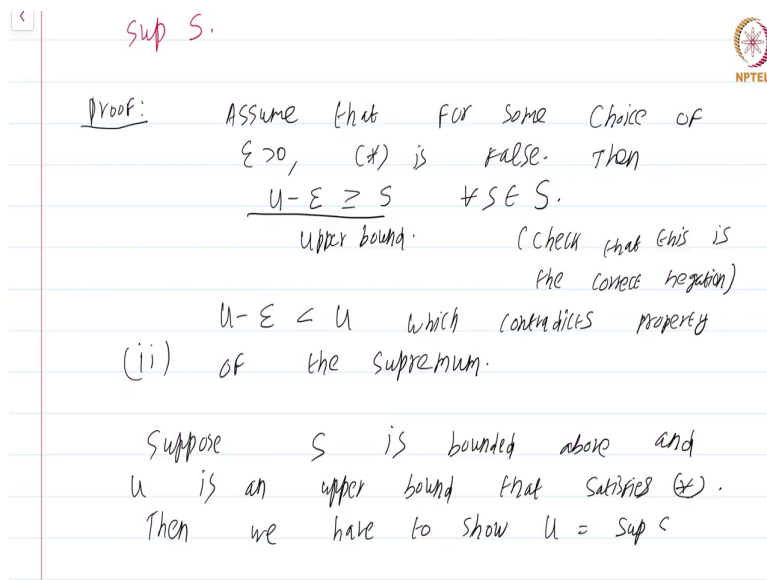 sup S.
NPTEL
Proof: Assume that for some choice of
ε>0, (*) is false. Then
u-ε ≥ s ∀ s ∈ S.
upper bound. (check that this is
the correct negation)
u-ε < u which contradicts property
(ii) of the supremum.
Suppose S is bounded above and
u is an upper bound that satisfies (*).
Then we have to show u = sup S